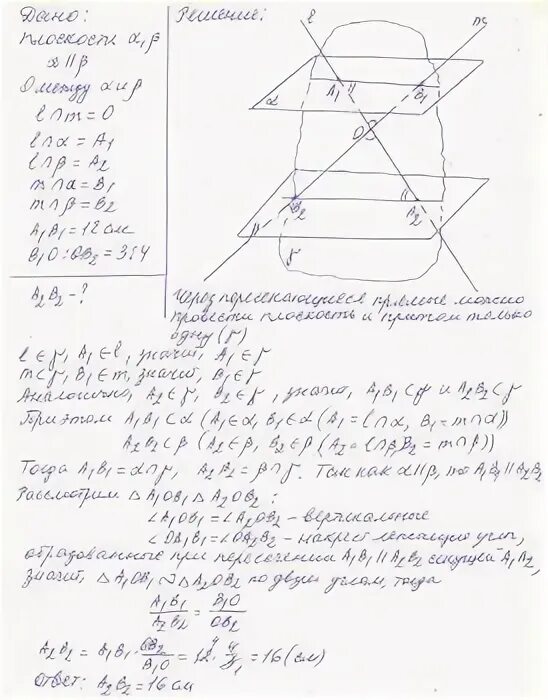 Дано:
плоскости α, β
α || β
O между α и β
l ∩ m = O
l ∩ α = A₁
l ∩ β = A₂
m ∩ α = B₁
m ∩ β = B₂
A₁B₁ = 12 см
B₁O : OB₂ = 3:4
A₂B₂ - ?
Решение:
l
m
A₁
B₁
α
O
B₂
A₂
β
γ
Через пересекающиеся прямые можно
провести плоскость и притом только
одну (γ)
l ∈ γ, A₁ ∈ l, значит, A₁ ∈ γ
m ⊂ γ, B₁ ∈ m, значит, B₁ ∈ γ
Аналогично, A₂ ∈ γ, B₂ ∈ γ, значит, A₁B₁ ⊂ γ и A₂B₂ ⊂ γ
При этом A₁B₁ ⊂ α (A₁ ∈ α, B₁ ∈ α (A₁ = l ∩ α, B₁ = m ∩ α))
A₂B₂ ⊂ β (A₂ ∈ β, B₂ ∈ β (A₂ = l ∩ β B₂ = m ∩ β))
Тогда A₁B₁ = α ∩ γ, A₂B₂ = β ∩ γ. Так как α || β, то A₁B₁ || A₂B₂
Рассмотрим △ A₁OB₁ △ A₂OB₂ :
∠ A₁OB₁ = ∠ A₂OB₂ - вертикальные
∠ OA₁B₁ = ∠ OA₂B₂ - накрест лежащие углы,
образованные при пересечении A₁B₁ || A₂B₂ секущей A₁A₂,
значит, △ A₁OB₁ ∾ △ A₂OB₂ по двум углам, тогда
A₁B₁/A₂B₂ = B₁O/OB₂
A₂B₂ = A₁B₁ · OB₂/B₁O = 12 · 4/3 = 16 (см)
Ответ: A₂B₂ = 16 см